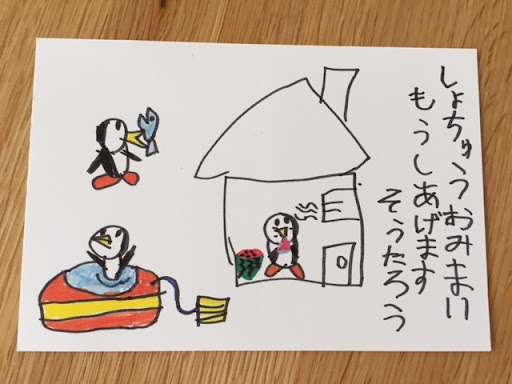 しょちゅうおみまい
もうしあげます
そうたろう